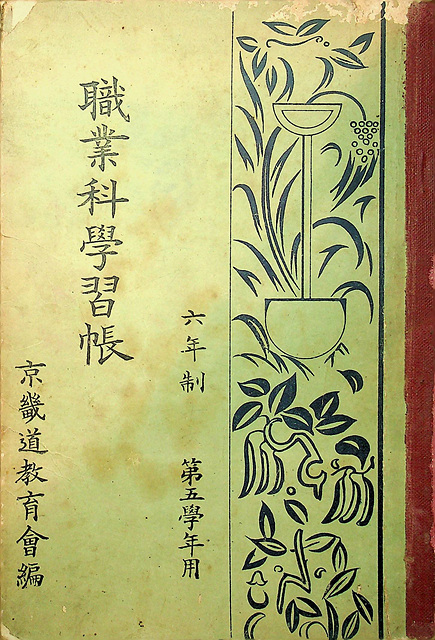 職業科學習帳
六年制 第五學年用
京畿道教育會編